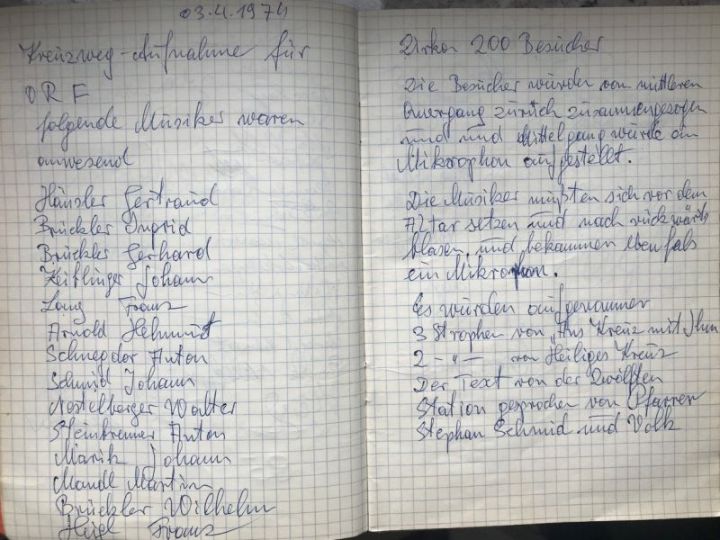 03.4.1974
Kreuzweg-Aufnahme für
ORF
folgende Musiker waren
anwesend
Häusler Gertraud
Brückler Ingrid
Brückler Gerhard
Johann
Lang Franz
Arnold Helmut
Anton
Schmid Johann
Nestelberger Walter
Anton
Marik Johann
Mandl Martin
Brückler Wilhelm
Franz
Zirka 200 Besucher
Die Besucher wurden vom mittleren
Quergang zurück zusammengezogen
und und Mittelgang wurde ein
Mikrophon aufgestellt.
Die Musiker mußten sich vor dem
Altar setzen und nach rückwärts
blasen und bekammen ebenfals
ein Mikrophon.
Es wurden aufgenommen
3 Strophen von „Ans Kreuz mit Ihm
2 – " – von Heiliges Kreuz
Der Text von der Zwölften
Station gesprochen von Pfarrer
Stephan Schmid und Volk